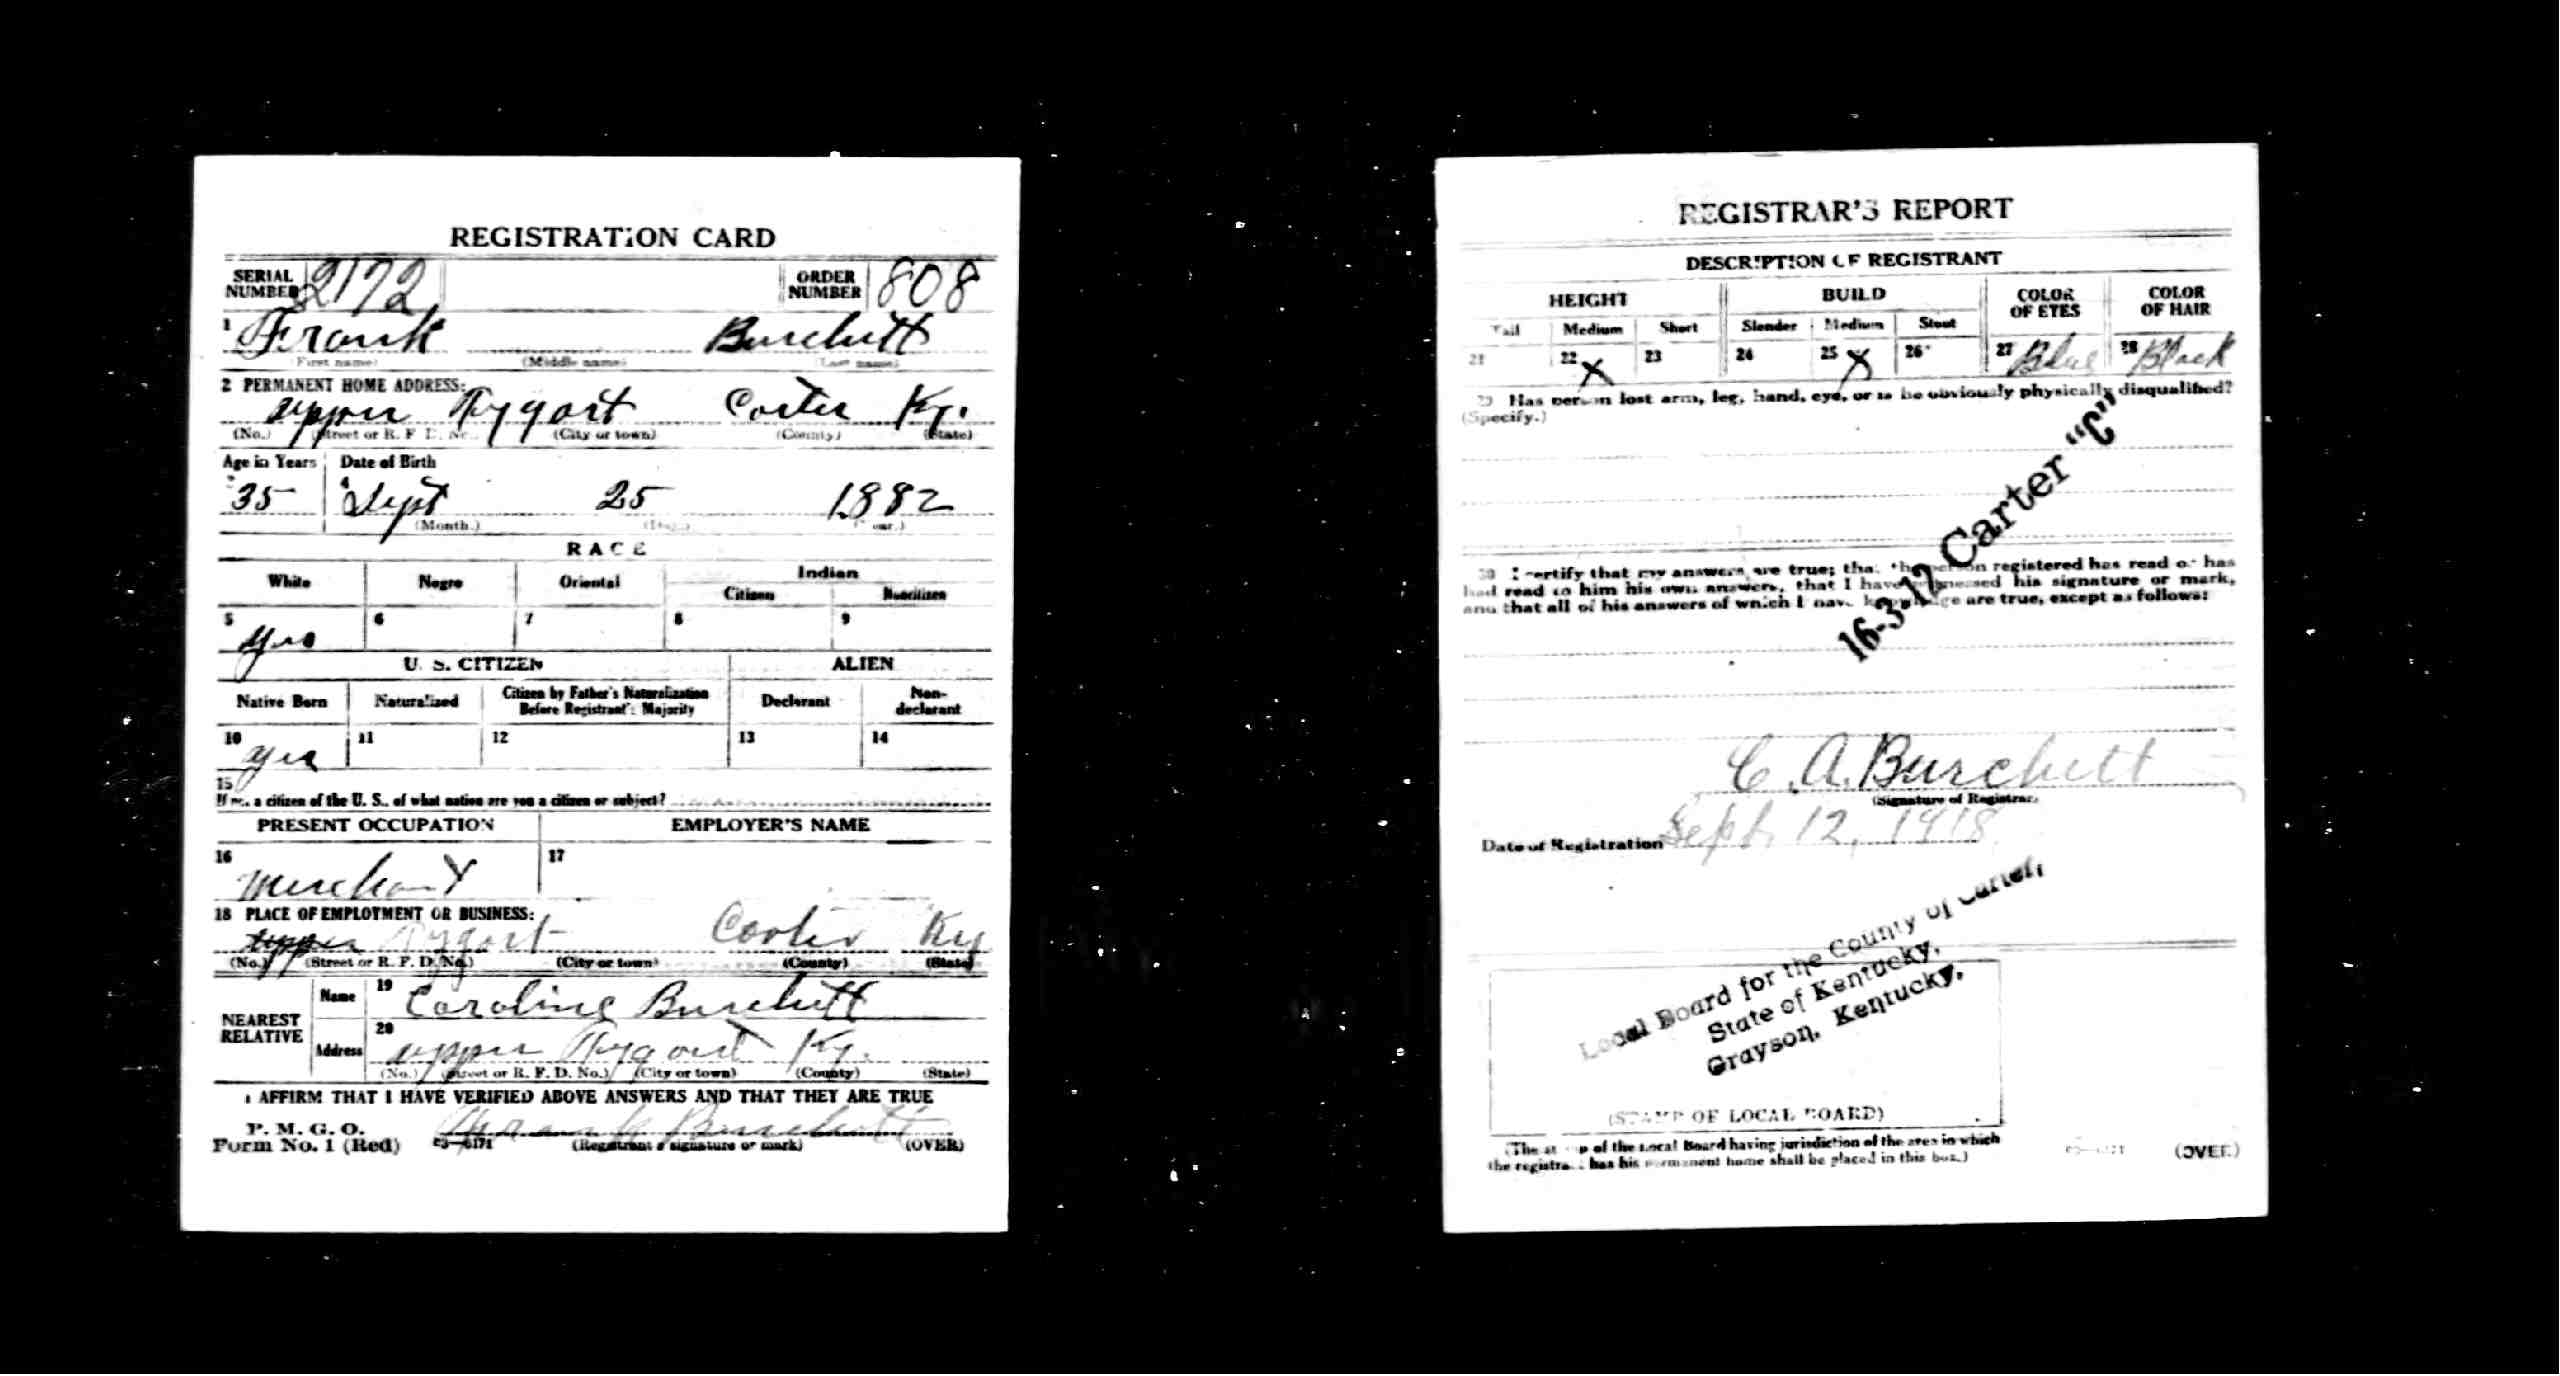 REGISTRATION CARD
SERIAL NUMBER 2172 ORDER NUMBER 808
1 Frank Burchett
(First name) (Middle name) (Last name)
2 PERMANENT HOME ADDRESS:
upper Tygart Carter Ky.
(No.) (Street or R. F. D. No.) (City or town) (County) (State)
Age in Years Date of Birth
35 4 Sept 25 1882
(Month.) (Day.) (Year.)
RACE
White Negro Oriental Indian
Citizen Noncitizen
5 6 7 8 9
yes
U. S. CITIZEN ALIEN
Native Born Naturalized Citizen by Father's Naturalization Before Registrant's Majority Declarant Non-declarant
10 11 12 13 14
yes
15
If not a citizen of the U. S., of what nation are you a citizen or subject?
PRESENT OCCUPATION EMPLOYER'S NAME
16 17
Merchant
18 PLACE OF EMPLOYMENT OR BUSINESS:
upper Tygart Carter Ky
(No.) (Street or R. F. D. No.) (City or town) (County) (State)
NEAREST RELATIVE Name 19 Caroline Burchett
Address 20 upper Tygart Ky.
(No.) (Street or R. F. D. No.) (City or town) (County) (State)
I AFFIRM THAT I HAVE VERIFIED ABOVE ANSWERS AND THAT THEY ARE TRUE
P. M. G. O.
Form No. 1 (Red) 03—6171 Frank Burchett (Registrant's signature or mark) (OVER)
REGISTRAR'S REPORT
DESCRIPTION OF REGISTRANT
HEIGHT BUILD COLOR OF EYES COLOR OF HAIR
Tall Medium Short Slender Medium Stout
21 22 X 23 24 25 X 26 27 Blue 28 Black
29 Has person lost arm, leg, hand, eye, or is he obviously physically disqualified?
(Specify.)
16-3-12 Carter "C"
30 I certify that my answers are true; that the person registered has read or has
had read to him his own answers, that I have witnessed his signature or mark,
and that all of his answers of which I have knowledge are true, except as follows:
C. A. Burchett
(Signature of Registrar)
Date of Registration Sept. 12, 1918
Local Board for the County of Carter,
State of Kentucky,
Grayson, Kentucky.
(STAMP OF LOCAL BOARD)
(The stamp of the Local Board having jurisdiction of the area in which
the registrant has his permanent home shall be placed in this box.)
03—6171 (OVER)